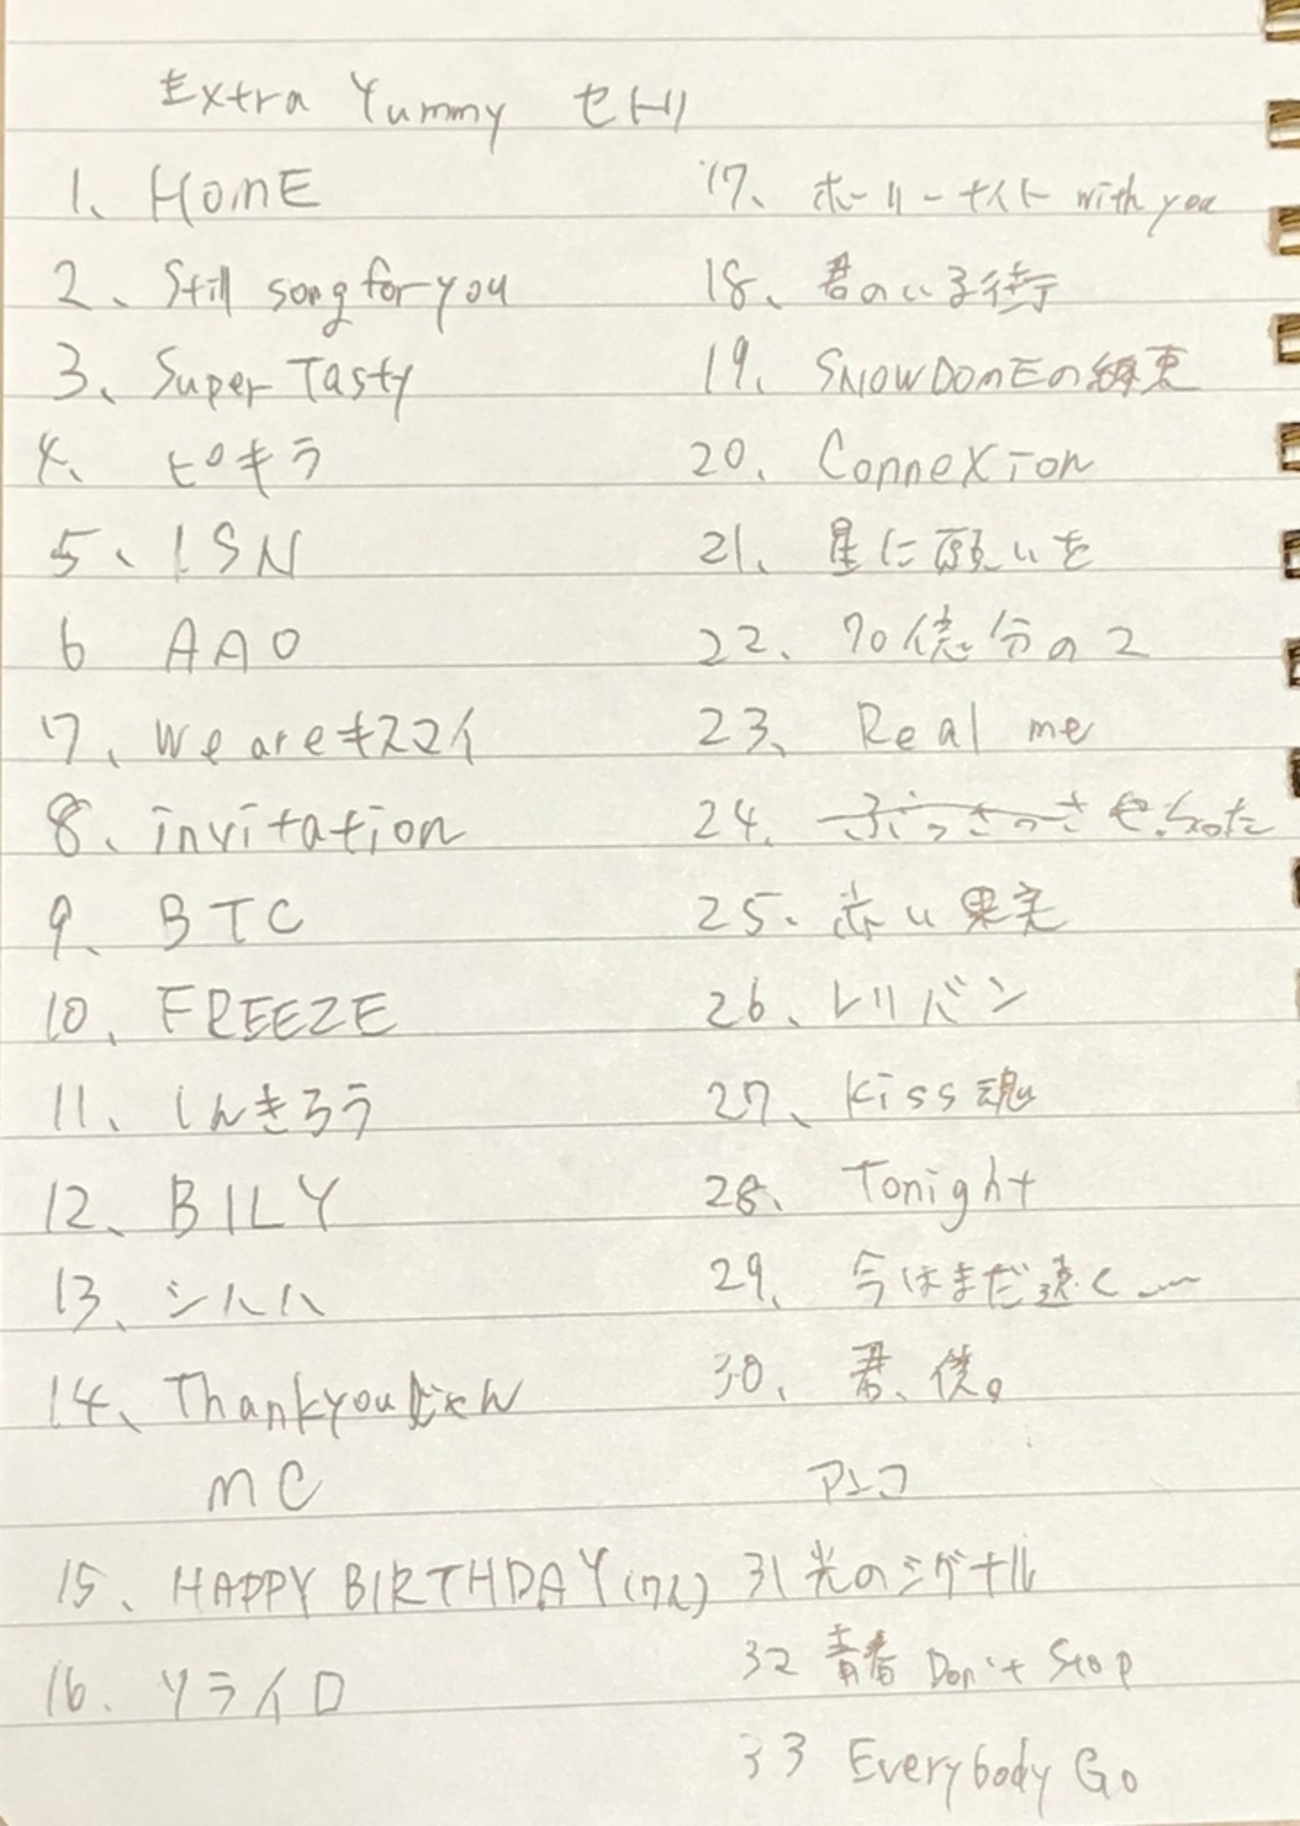 Extra Yummy セトリ
1、HOmE
2、Still song for you
3、Super Tasty
4、ピキラ
5、ISN
6 AAO
7、We areキスマイ
8、invitation
9、BTC
10、FREEZE
11、しんきろう
12、BILY
13、シハハ
14、Thankyouじゃん
mC
15、HAPPY BIRTHDAY
16、ソライロ
17、ホーリーナイト with you
18、君のいる街
19、SNOWDOmEの約束
20、ConneXion
21、星に願いを
22、70億分の2
23、Real me
24、
25、赤い果実
26、レリバン
27、Kiss魂
28、Tonight
29、今はまだ遠く〜
30、君、僕。
アンコ
31光のシグナル
32 青春 Don't Stop
33 Everybody Go